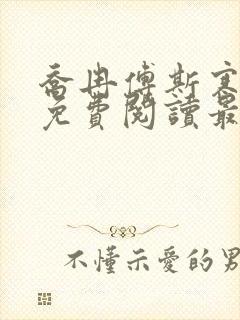 喬冉傅斯寒
免費閱讀最
不懂示愛的男